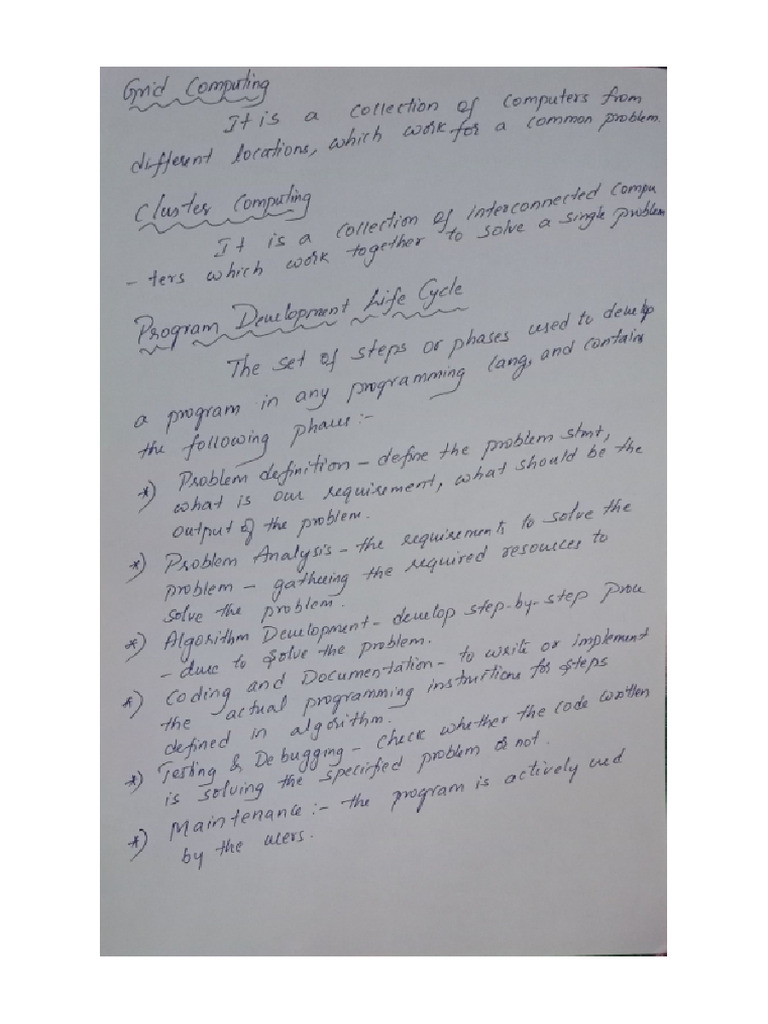 Grid Computing
It is a collection of computers from
different locations, which work for a common problem.
Cluster Computing
It is a collection of interconnected compu
-ters which work together to solve a single problem
Program Development Life Cycle
The set of steps or phases used to develop
a program in any programming lang, and contains
the following phases:-
*) Problem definition - define the problem stmt,
what is our requirement, what should be the
output of the problem.
*) Problem Analysis - the requirements to solve the
problem - gathering the required resources to
solve the problem.
*) Algorithm Development - develop step-by-step proce
-dure to solve the problem.
*) Coding and Documentation - to write or implement
the actual programming instructions for steps
defined in algorithm.
*) Testing & Debugging - check whether the code written
is solving the specified problem or not.
*) Maintenance :- the program is actively used
by the users.